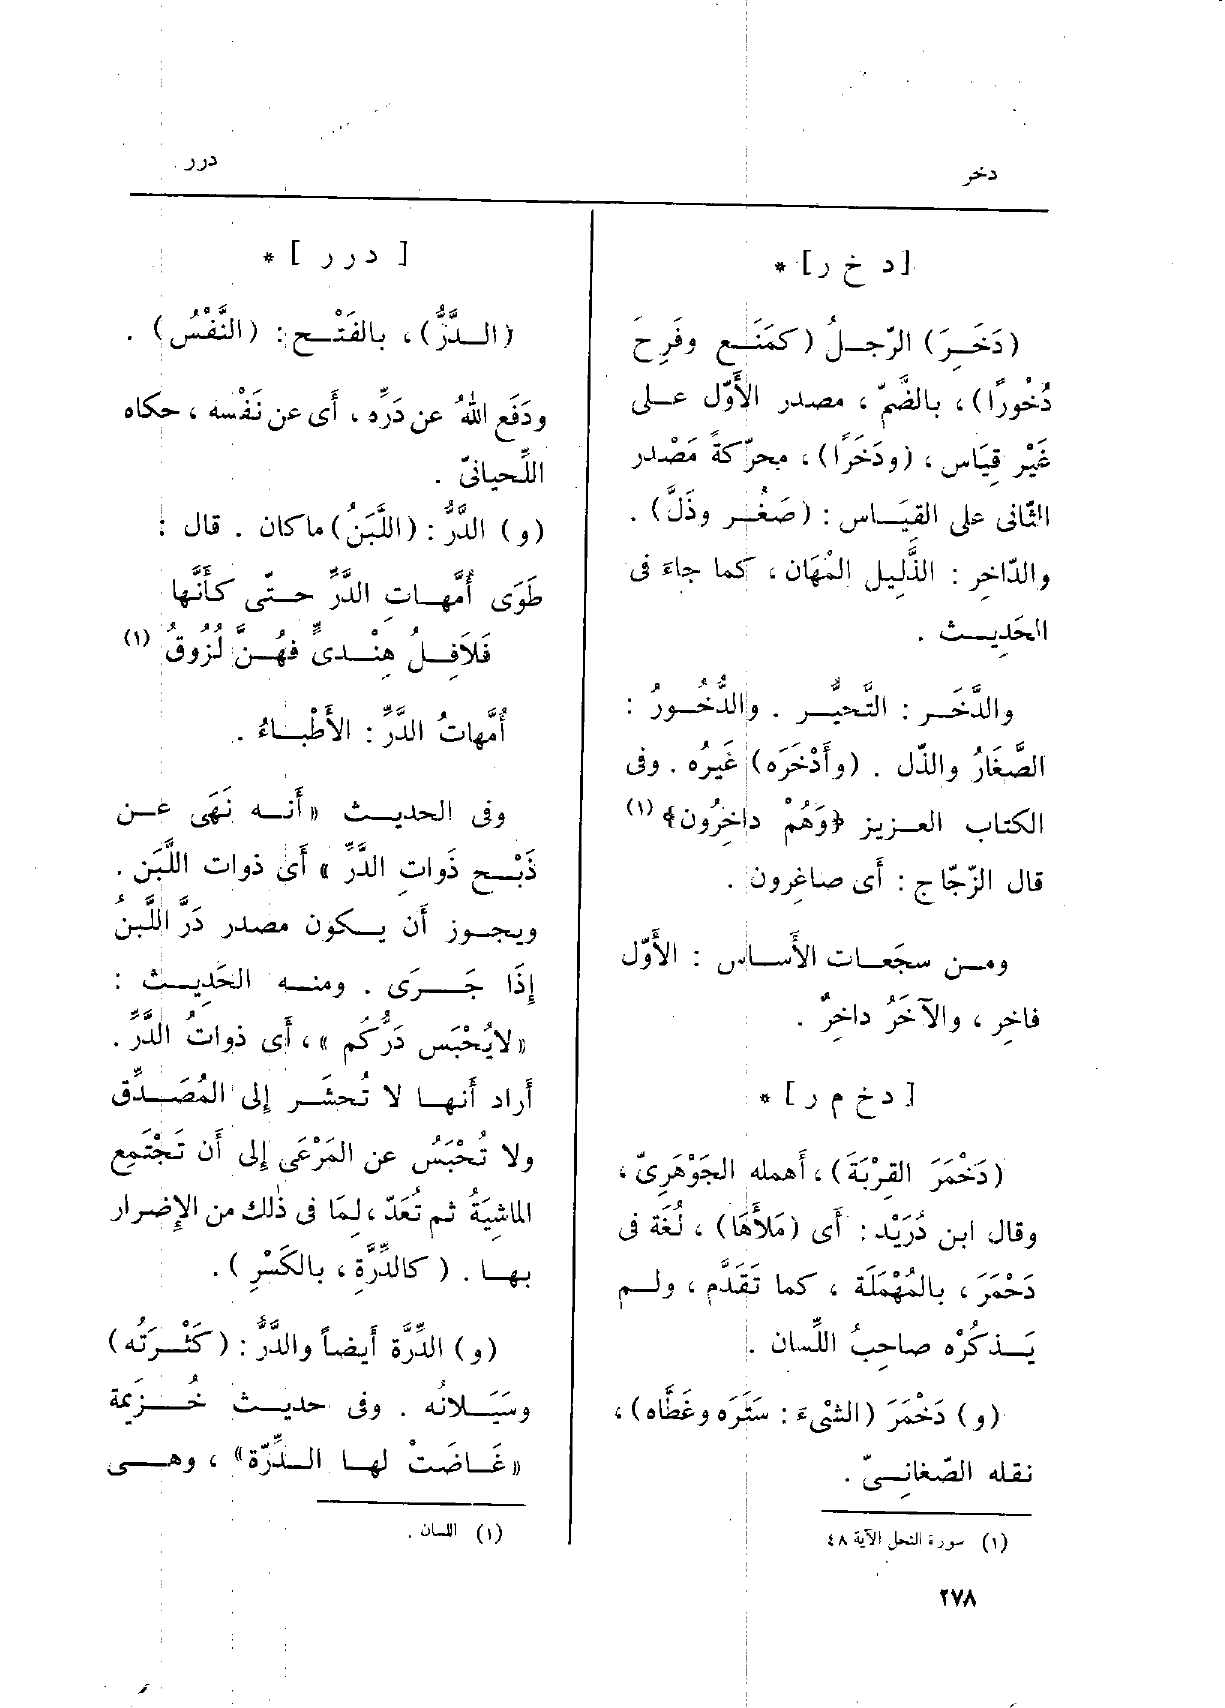 دخر
درر
[د خ ر] *
(دَخَرَ) الرّجلُ (كمَنَع وفَرِحَ
دُخْورًا)، بالضَّمّ، مصدر الأَوّل على
غَيْر قِيَاس، (ودَخَرًا)، محرّكةً مَصْدر
الثّانى على القِيَاس : (صَغُر وذَلَّ) .
والدّاخِر : الذَّلِيل المُهَان، كما جاءَ فى
الحَدِيث .
والدَّخَر : التَّحيُّر . والدُّخُورُ :
الصَّغَارُ والذّل . (وأَدْخَرَه) غَيرُه . وفى
الكتاب العزيز ﴿وَهُمْ داخِرُون﴾ (١)
قال الزّجّاج : أَى صاغِرون .
ومن سجَعات الأَساس : الأَوّل
فاخِر، والآخَرُ داخِرٌ .
[د خ م ر] *
(دَخْمَرَ القِرْبَةَ)، أَهمله الجَوْهَرِىّ،
وقال ابن دُرَيْد : أَى (مَلأَهَا)، لُغَة فى
دَحْمَرَ، بالمُهْمَلَة، كما تَقَدَّم، ولم
يَذكُرْه صاحِبُ اللِّسان .
(و) دَخْمَرَ (الشْىءَ : سَتَرَه وغَطَّاه)،
نقله الصّغانِىّ .
(١) سورة النحل الآية ٤٨
[ درر ] *
(الدَّرُّ)، بالفَتْح : (النَّفْسُ) .
ودَفَع اللهُ عن دَرِّه، أَى عن نَفْسه، حكاه
اللِّحيانىّ .
(و) الدَّرُّ : (اللَّبَنُ) ما كان . قال :
طَوَى أُمَّهاتِ الدَّرِّ حتّى كأَنَّها
فَلاَفِلُ هِنْدىٍّ فهُنَّ لُزُوقُ (١)
أُمَّهاتُ الدَّرِّ : الأَطْباءُ .
وفى الحديث «أَنه نَهَى عن
ذَبْح ذَواتِ الدَّرِّ» أَى ذوات اللَّبَن .
ويجوز أَن يكون مصدر دَرَّ اللَّبنُ
إِذَا جَرَى . ومنه الحَدِيث :
«لايُحْبَس دَرُّكم»، أَى ذواتُ الدَّرِّ .
أَراد أَنها لا تُحشَر إِلى المُصَدِّق
ولا تُحْبَسُ عن المَرْعَى إِلى أَن تَجْتَمِع
الماشِيَةُ ثم تُعَدّ، لِمَا فى ذٰلك من الإِضرار
بها . (كالدِّرَّةِ، بالكَسْرِ) .
(و) الدِّرَّة أَيضاً والدَّرُّ : (كَثْرَتُه)
وسَيَلانُه . وفى حديث خُزَيمة
«غَاضَتْ لها الدِّرّة»، وهى
(١) اللسان .
٢٧٨